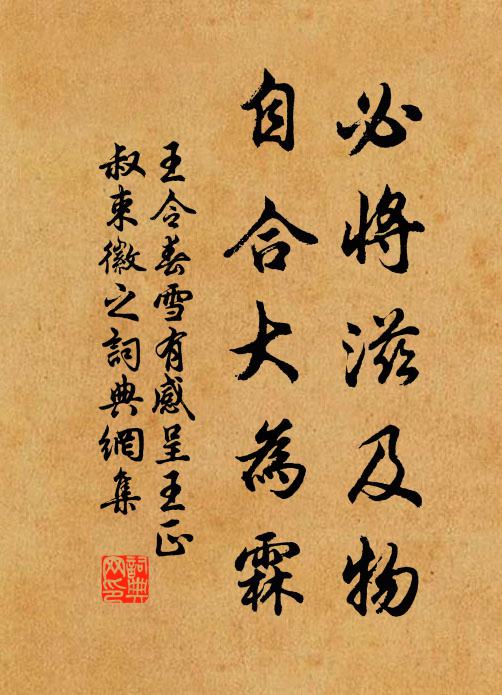 必將滋及物
自合大為霖
王令春雪有感呈王正
叔束徽之詞典網集
詞典
网印